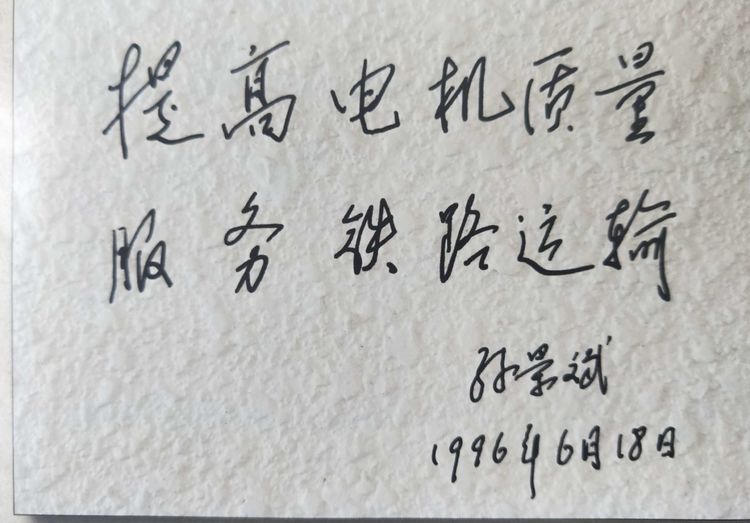 提高电机质量
服务铁路运输
孙景斌
1996年6月18日